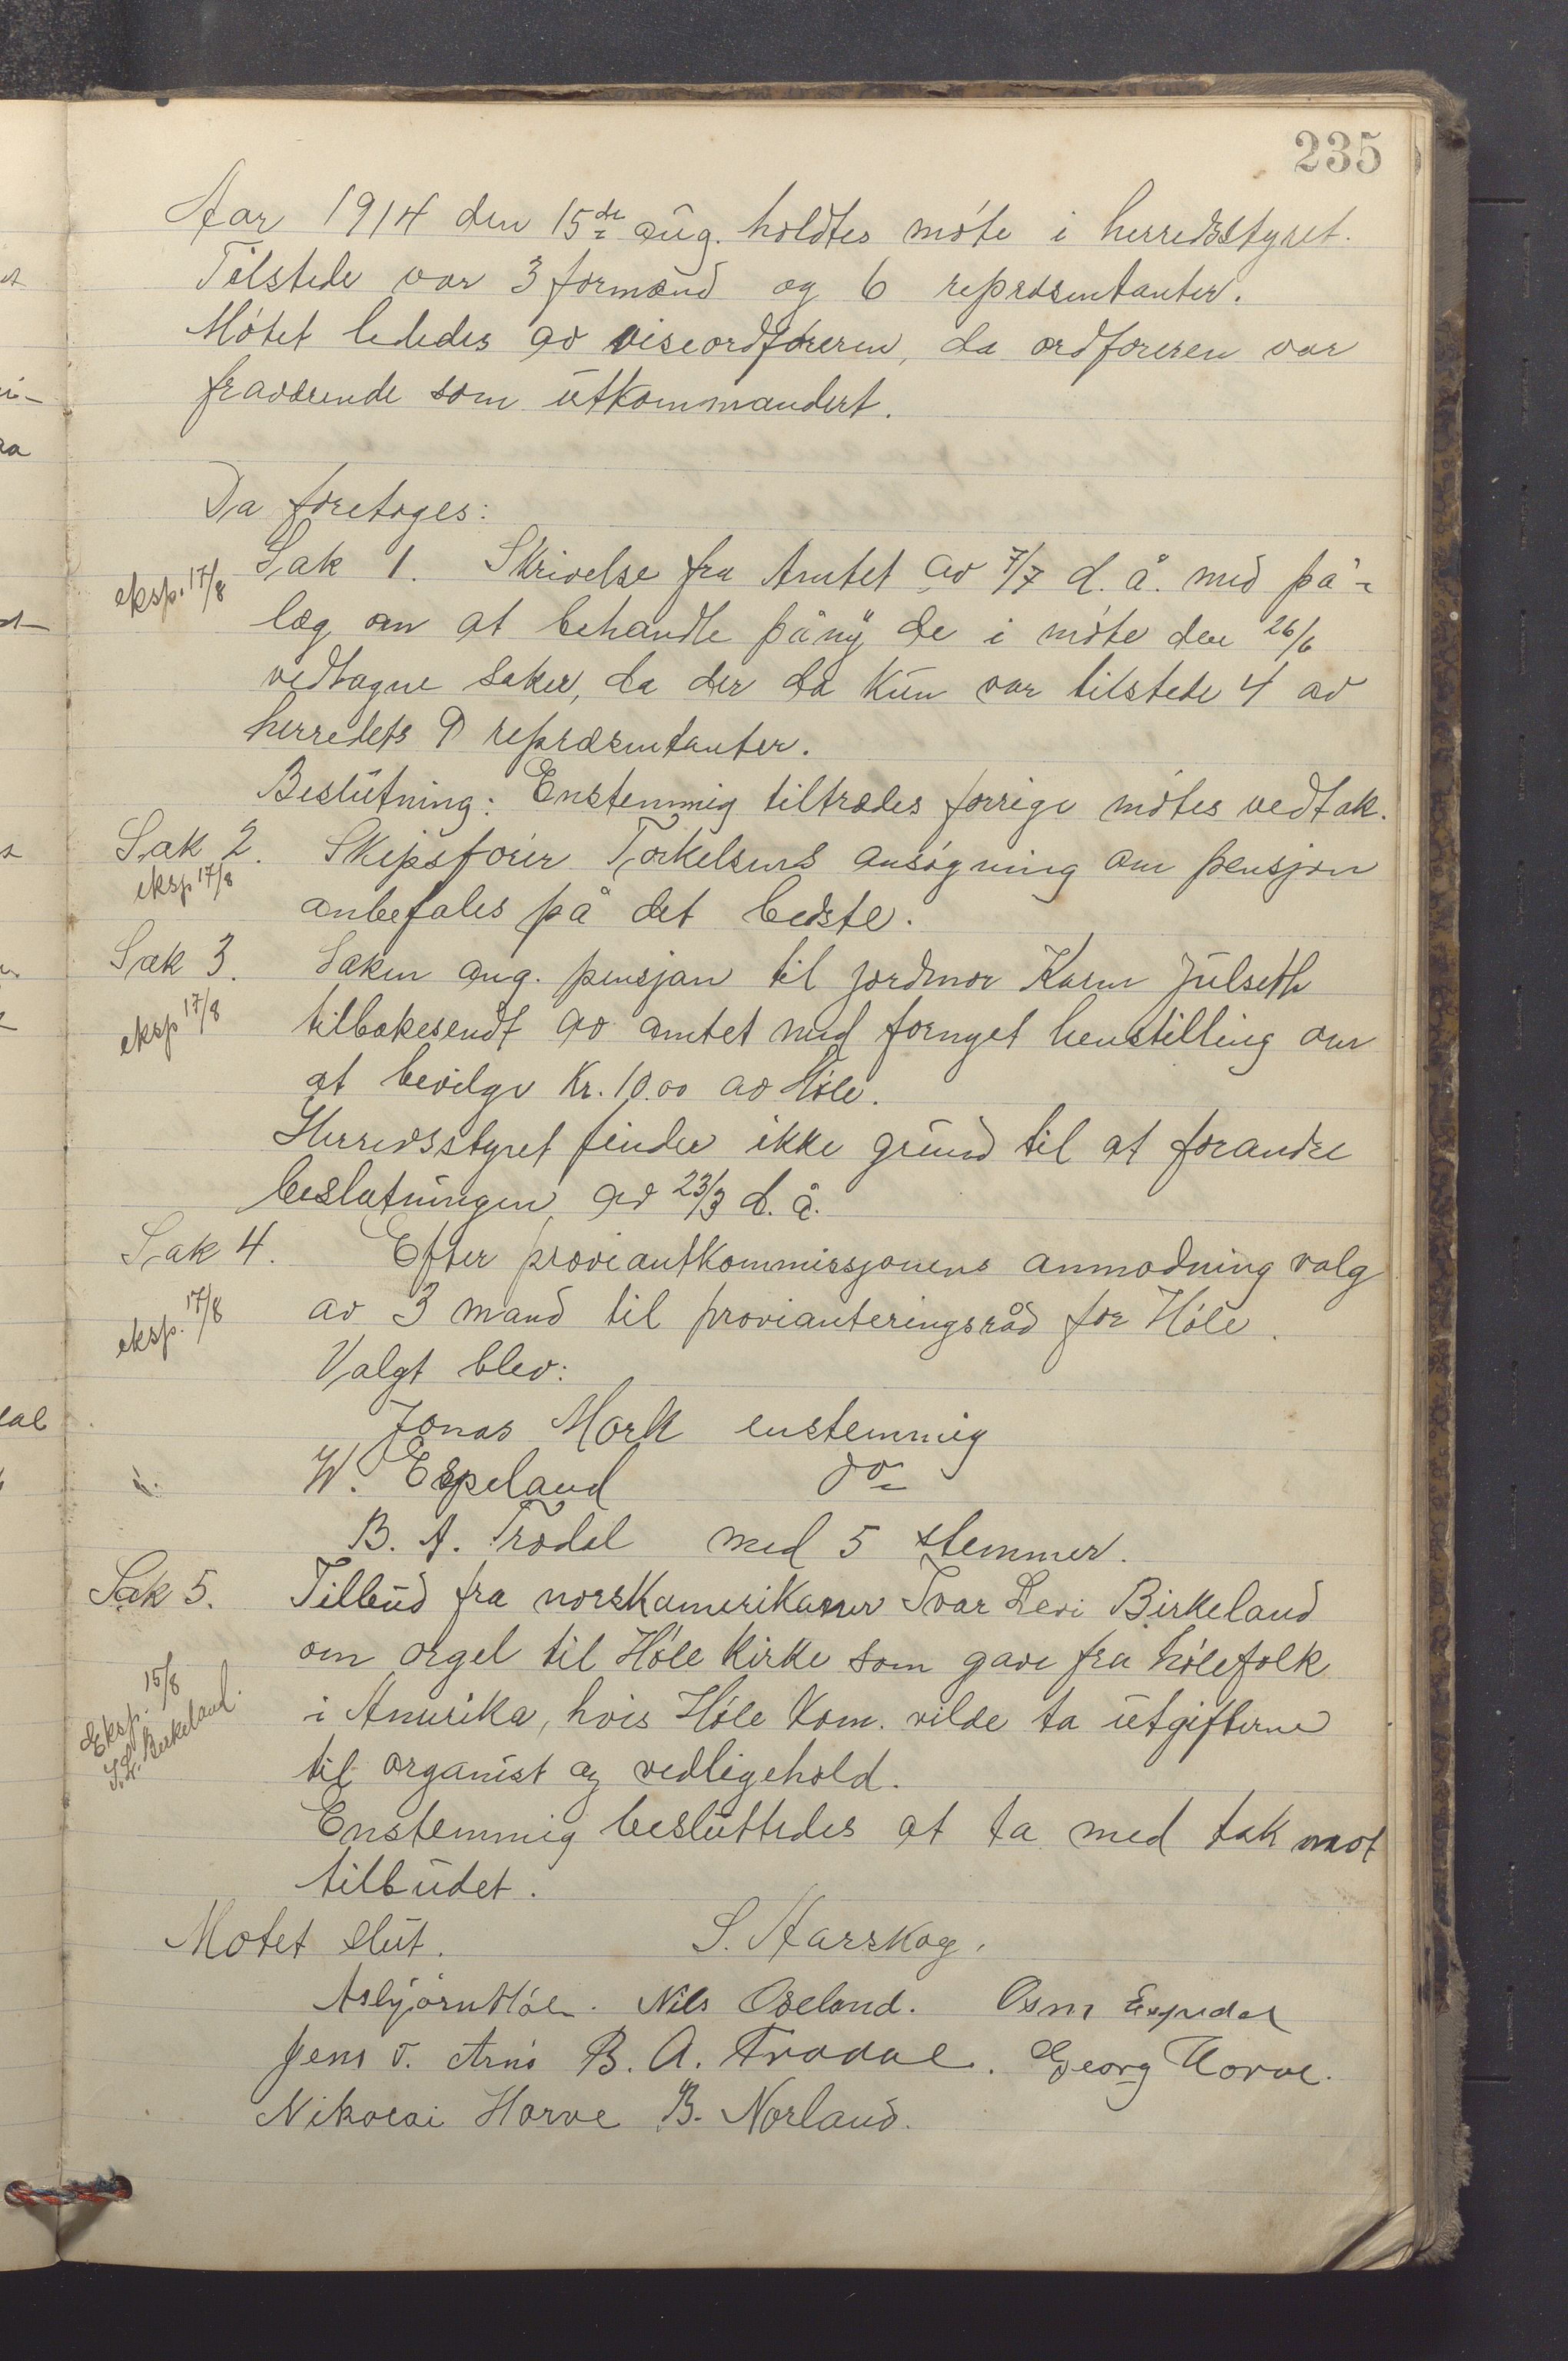 235
Aar 1914 den 15de aug. holdtes møte i herredsstyret.
Tilstede var 3 formænd og 6 repræsentanter.
Møtet lededes av viseordføreren, da ordføreren var
fraværende som utkommandert.
Da foretoges:
eksp. 17/8
Sak 1. Skrivelse fra Amtet av 7/7 d. å. med på-
læg om at behandle påny de i møte den 26/6
vedtagne saker, da der da kun var tilstede 4 av
herredets 9 repræsentanter.
Beslutning: Enstemmig tiltrædes forrige møtes vedtak.
Sak 2. Skipsfører Torkelsens ansøgning om pensjon
eksp 17/8
anbefales på det bedste.
Sak 3. Saken ang. pensjon til jordmor Karen Julseth
eksp 17/8
tilbakesendt av amtet med fornyet henstilling om
at bevilge Kr. 10.00 av Høle.
Herredsstyret finder ikke grund til at forandre
beslutningen av 23/3 d. å.
Sak 4. Efter proviantkommissjonens anmodning valg
eksp. 17/8
av 3 mand til provianteringsråd for Høle.
Valgt blev:
Jonas Mork enstemmig
W. Espeland do
B. A. Trodal med 5 stemmer.
Sak 5. Tilbud fra norskamerikaner Ivar Levi Birkeland
om orgel til Høle kirke som gave fra hølefolk
Eksp. 15/8
I. L. Birkeland.
i Amerika, hvis Høle kom. vilde ta utgifterne
til organist og vedligehold.
Enstemmig besluttedes at ta med tak mot
tilbudet.
Møtet slut. S. Aarskog.
Asbjørn Høle. Nils Oseland. Osm Espedal
Jens T. B. A. Trodal. Georg Horve.
Nikolai Horve B. Norland.